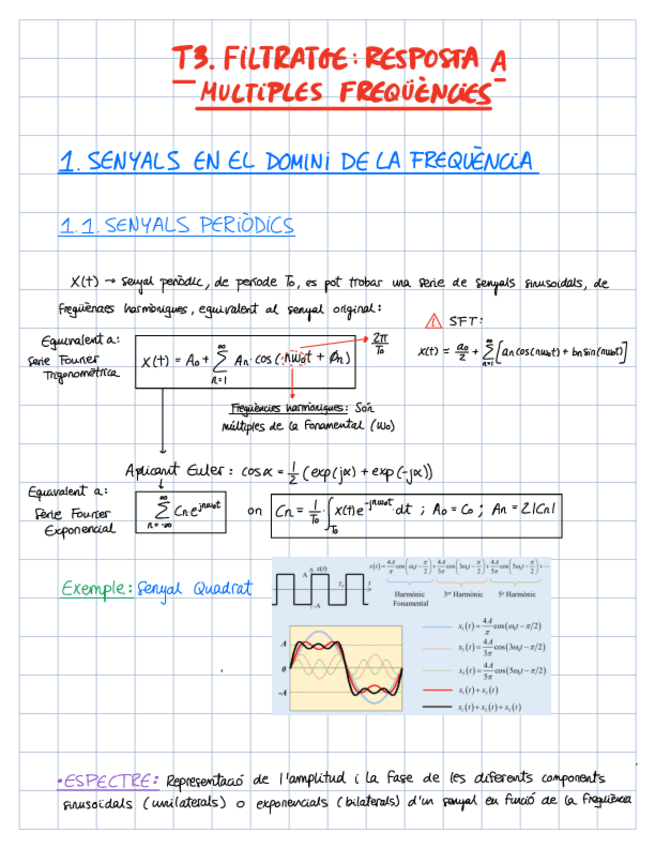 T3. FILTRATGE: RESPOSTA A
MULTIPLES FREQÜÈNCIES
1. SENYALS EN EL DOMINI DE LA FREQÜÈNCIA
1.1. SENYALS PERIÒDICS
X(t) → senyal periòdic, de període T₀, es pot trobar una serie de senyals sinusoidals, de
freqüències harmòniques, equivalent al senyal original:
⚠ SFT:
x(t) = a₀/2 + ∑_{n=1}^{∞} [an cos(nω₀t) + bn sin(nω₀t)]
Equivalent a:
Sèrie Fourier
Trigonomètrica
X(t) = A₀ + ∑_{n=1}^{∞} An · cos(nω₀t + ϕn)
2π/T₀
Freqüències harmòniques: Són
múltiples de la Fonamental (ω₀)
Aplicant Euler: cosα = 1/2 (exp(jα) + exp(-jα))
Equivalent a:
Sèrie Fourier
Exponencial
∑_{n=-∞}^{∞} Cn e^{jnω₀t} on Cn = 1/T₀ · ∫_{T₀} x(t) e^{-jnω₀t} · dt ; A₀ = C₀ ; An = 2|Cn|
Exemple: Senyal Quadrat
A x(t) T₀ t -A
x(t) = 4A/π cos(ω₀t − π/2) + 4A/3π cos(3ω₀t − π/2) + 4A/5π cos(5ω₀t − π/2) + ···
Harmònic Fonamental 3er Harmònic 5è Harmònic
A
0
-A
x₁(t) = 4A/π cos(ω₀t − π/2)
x₃(t) = 4A/3π cos(3ω₀t − π/2)
x₅(t) = 4A/5π cos(5ω₀t − π/2)
x₁(t) + x₃(t)
x₁(t) + x₃(t) + x₅(t)
• ESPECTRE: Representació de l'amplitud i la fase de les diferents components
sinusoidals (unilaterals) o exponencials (bilaterals) d'un senyal en funció de la freqüència